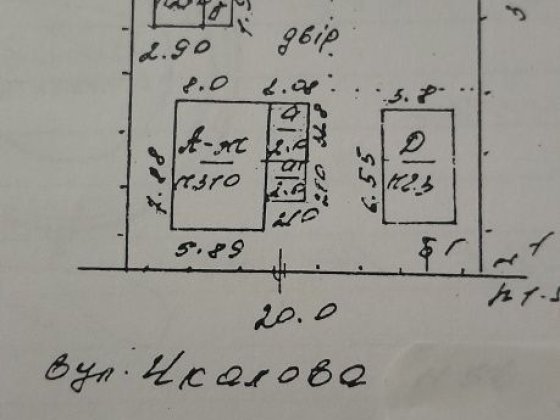 2.90
двір
8.0
2.08
3.8
А-ж
7.88
а
2.0
а1
2.0
2.10
6.55
Д
h2.3
210
5.89
20.0
вул. Чкалова